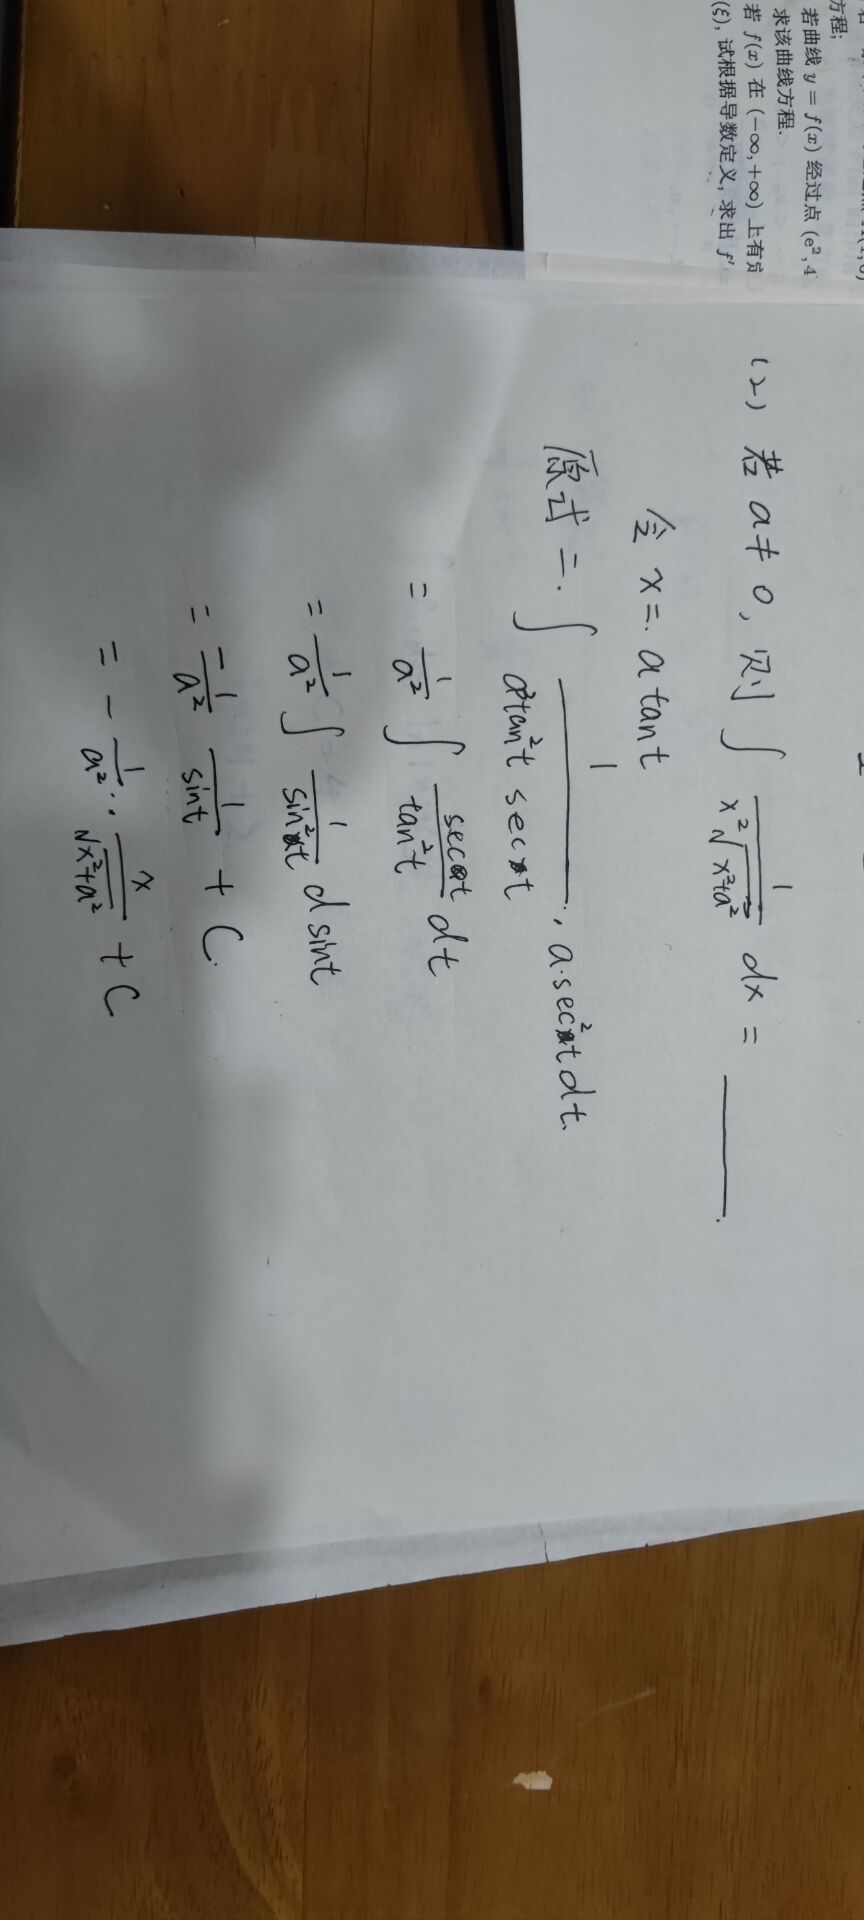 方程;
若曲线 y = f(x) 经过点 (e², 4
求该曲线方程.
若 f(x) 在 (−∞, +∞) 上有定
(ξ), 试根据导数定义, 求出 f′
(2) 若 a ≠ 0, 则 ∫ 1/(x²√(x²+a²)) dx = ____.
令 x = a tan t
原式 = ∫ 1/(a²tan²t sec t) · a·sec²t dt.
= 1/a² ∫ sec t/tan²t dt
= 1/a² ∫ 1/sin²t d sin t
= −1/a² 1/sin t + C.
= − 1/a² · x/√(x²+a²) + C